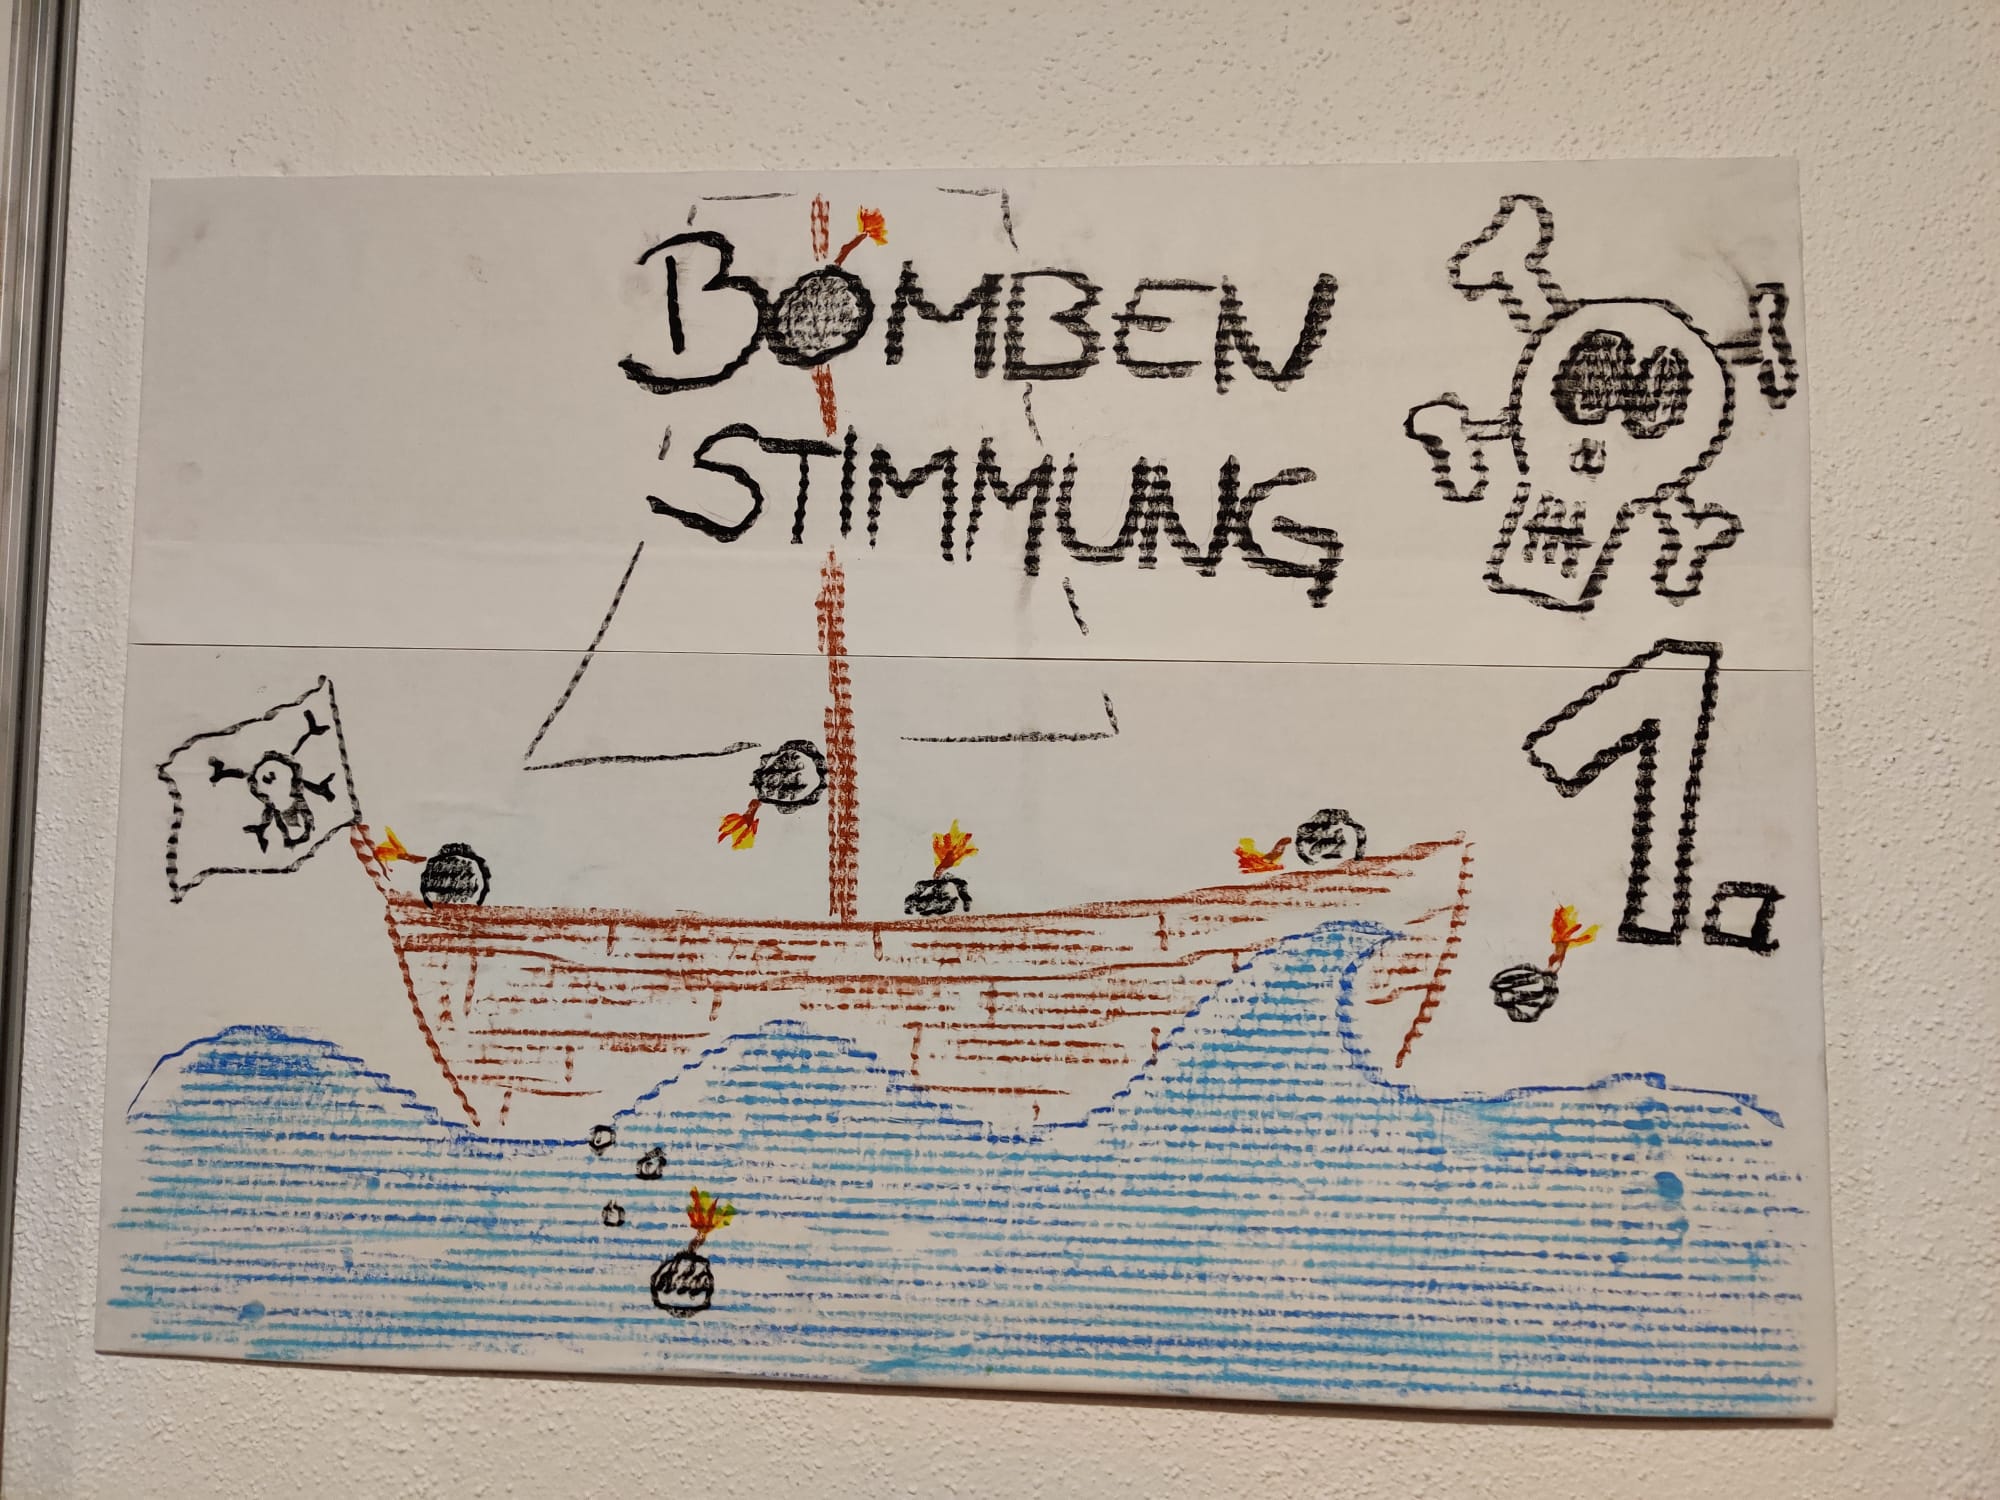 BOMBEN
STIMMUNG
1.